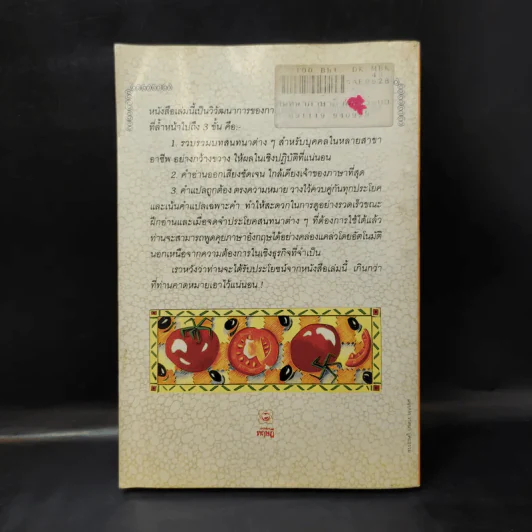 หนังสือเล่มนี้เป็นวิวัฒนาการของกา
ที่ล้ำหน้าไปถึง 3 ขั้น คือ:-
1. รวบรวมบทสนทนาต่าง ๆ สำหรับบุคคลในหลายสาขา
อาชีพ อย่างกว้างขวาง ให้ผลในเชิงปฏิบัติที่แน่นอน
2. คำอ่านออกเสียงชัดเจน ใกล้เคียงเจ้าของภาษาที่สุด
3. คำแปลถูกต้อง ตรงความหมาย วางไว้ควบคู่กันทุกประโยค
และเน้นคำแปลเฉพาะคำ ทำให้สะดวกในการดูอย่างรวดเร็วขณะ
ฝึกอ่านและเมื่อจดจำประโยคสนทนาต่าง ๆ ที่ต้องการใช้ได้แล้ว
ท่านจะสามารถพูดคุยภาษาอังกฤษได้อย่างคล่องแคล่วโดยอัตโนมัติ
นอกเหนือจากความต้องการในเชิงธุรกิจที่จำเป็น
เราหวังว่าท่านจะได้รับประโยชน์จากหนังสือเล่มนี้ เกินกว่า
ที่ท่านคาดหมายเอาไว้แน่นอน !